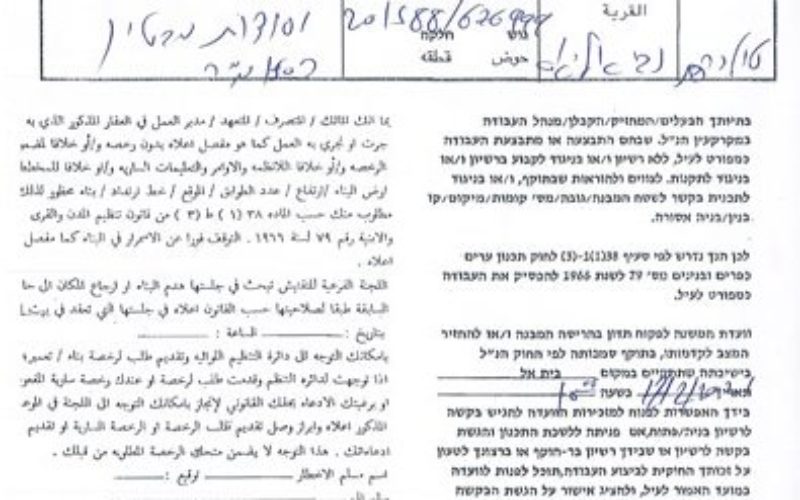 القرية
201588/626999
גוש חלקה
حوض قطعة
יסודות מבטון
נבי אליאס
טולכרם
בהיותך הבעלים/המחזיק/הקבלן/מנהל העבודה
במקרקעין הנ"ל. שבהם התבצעה או מתבצעת העבודה
כמפורט לעיל, ללא רשיון ו/או בניגוד לקבוע ברשיון ו/או
בניגוד לתקנות. לצווים ולהוראות שבתוקף, ו/או בניגוד
לתכנית בקשר לשטח המבנה/גובה/מסי קומות/מיקום/קו
בנין/בניה אסורה.
לכן הנך נדרש לפי סעיף 38(1)-(3) לחוק תכנון ערים
כפרים ובנינים מס' 79 לשנת 1966 להפסיק את העבודה
כמפורט לעיל.
וועדת המשנה לפקוח תדון בהריסת המבנה ו/או להחזיר
המצב לקדמותו, בתוקף סמכותה לפי החוק הנ"ל
בישיבתה שתתקיים במקום בית אל
בשעה
בידך האפשרות לפנות למזכירות הוועדה להגיש בקשה
לרשיון בניה/פתוח, אם פניתה ללשכת התכנון והגשת
בקשה לרשיון או שבידך רשיון בר-תוקף או ברצונך לטעון
על זכותך החוקית לביצוע העבודה, תוכל לפנות לוועדה
במועד האמור לעיל, ולהציג אישור על הגשת הבקשה
بما انك المالك / المتصرف / المتعهد / مدير العمل في العقار المذكور الذي به
جرت او تجري به العمل كما هو مفصل اعلاه بدون رخصه و/أو خلافا لقسم
الرخصه و/أو خلافا للانظمه والاوامر والتعليمات الساريه و/او خلافا للمخطط
ارض البناء /ارتفاع / عدد الطوابق / الموقع / خط ارتداد / بناء محظور لذلك
مطلوب منك حسب الماده ٣٨ (١) ط (٣) من قانون تنظيم المدن والقرى
والابنية رقم ٧٩ لسنة ١٩٦٦ . التوقف فورا عن الاستمرار في البناء كما مفصل
اعلاه .
اللجنة الفرعية للتفتيش تبحث في جلستها هدم البناء او ارجاع المكان الى حا
السابقة طبقا لصلاحيتها حسب القانون اعلاه في جلستها التي تعقد في
بتاريخ : الساعة :
بامكانك التوجه الى دائرة التنظيم اللوائيه وتقديم طلب لرخصة بناء / تعمير؛
اذا توجهت لدائره التنظم وقدمت طلب لرخصة او عندك رخصة سارية
او برغبتك الادعاء بحقك القانوني لإنجاز بامكانك التوجه الى اللجنة في
المذكور اعلاه وابراز وصل تقديم طلب الرخصة او الرخصة السارية او تقديم
ادعاءاتك . هذا التوجه لا يضمن منحك الرخصة المطلوبه من قبلك .
اسم مسلم الاخطار توقيع :